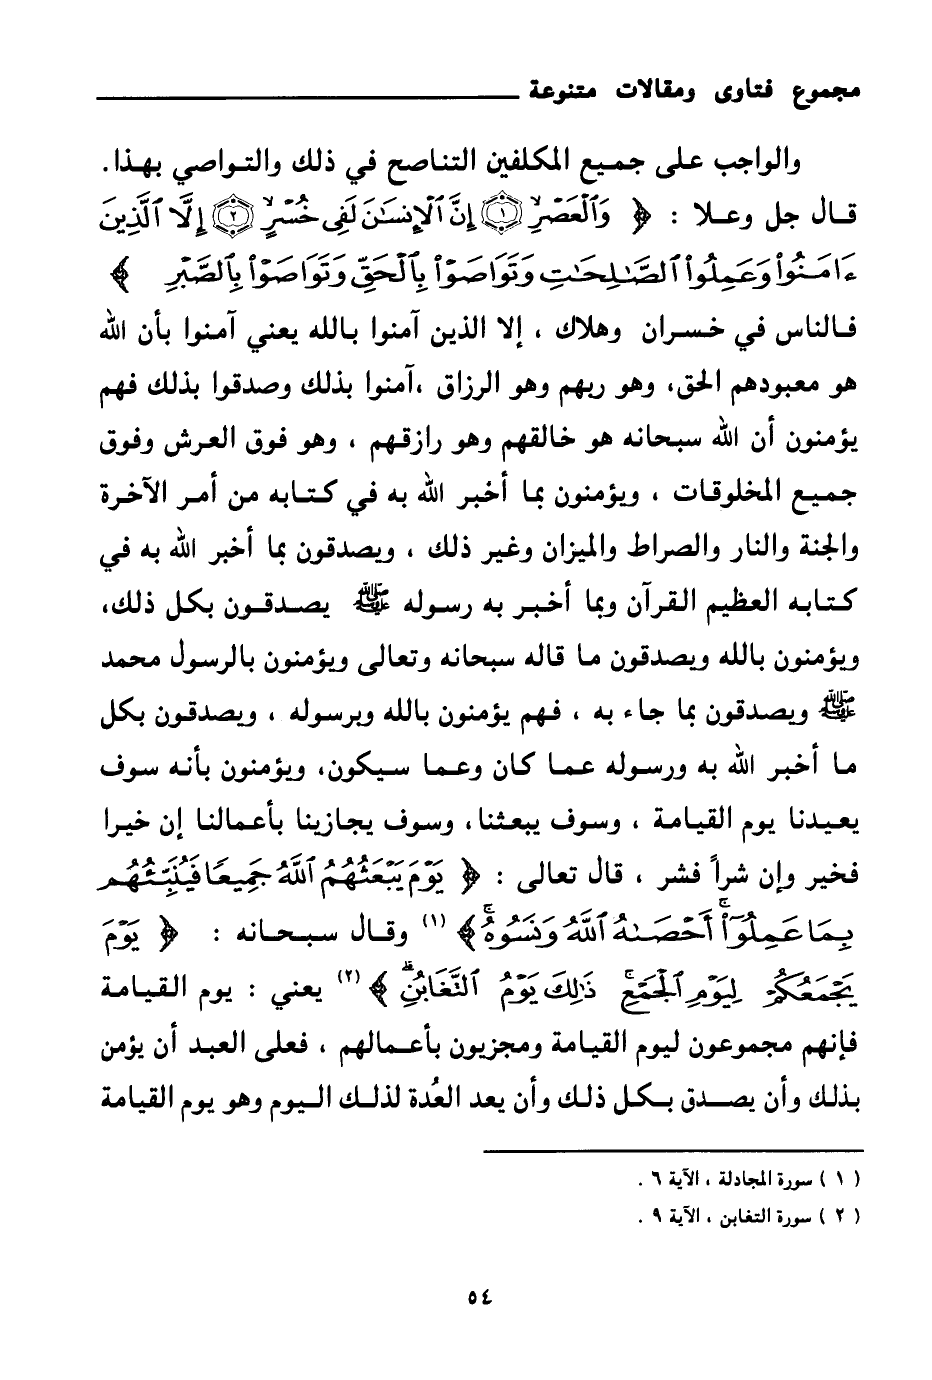 مجموع فتاوى ومقالات متنوعة
والواجب على جميع المكلفين التناصح في ذلك والتواصي بهذا.
قال جل وعلا : ﴿ وَٱلْعَصْرِ ۝١ إِنَّ ٱلْإِنسَـٰنَ لَفِى خُسْرٍ ۝٢ إِلَّا ٱلَّذِينَ
ءَامَنُوا۟ وَعَمِلُوا۟ ٱلصَّـٰلِحَـٰتِ وَتَوَاصَوْا۟ بِٱلْحَقِّ وَتَوَاصَوْا۟ بِٱلصَّبْرِ ﴾
فالناس في خسران وهلاك ، إلا الذين آمنوا بالله يعني آمنوا بأن الله
هو معبودهم الحق، وهو ربهم وهو الرزاق ،آمنوا بذلك وصدقوا بذلك فهم
يؤمنون أن الله سبحانه هو خالقهم وهو رازقهم ، وهو فوق العرش وفوق
جميع المخلوقات ، ويؤمنون بما أخبر الله به في كتابه من أمر الآخرة
والجنة والنار والصراط والميزان وغير ذلك ، ويصدقون بما أخبر الله به في
كتابه العظيم القرآن وبما أخبر به رسوله ﷺ يصدقون بكل ذلك،
ويؤمنون بالله ويصدقون ما قاله سبحانه وتعالى ويؤمنون بالرسول محمد
ﷺ ويصدقون بما جاء به ، فهم يؤمنون بالله وبرسوله ، ويصدقون بكل
ما أخبر الله به ورسوله عما كان وعما سيكون، ويؤمنون بأنه سوف
يعيدنا يوم القيامة ، وسوف يبعثنا، وسوف يجازينا بأعمالنا إن خيرا
فخير وإن شراً فشر ، قال تعالى : ﴿ يَوْمَ يَبْعَثُهُمُ ٱللَّهُ جَمِيعًا فَيُنَبِّئُهُم
بِمَا عَمِلُوٓا۟ ۚ أَحْصَىٰهُ ٱللَّهُ وَنَسُوهُ ۚ ﴾ (١) وقال سبحانه : ﴿ يَوْمَ
يَجْمَعُكُمْ لِيَوْمِ ٱلْجَمْعِ ۖ ذَٰلِكَ يَوْمُ ٱلتَّغَابُنِ ۗ ﴾ (٢) يعني : يوم القيامة
فإنهم مجموعون ليوم القيامة ومجزيون بأعمالهم ، فعلى العبد أن يؤمن
بذلك وأن يصدق بكل ذلك وأن يعد العُدة لذلك اليوم وهو يوم القيامة
( ١ ) سورة المجادلة ، الآية ٦ .
( ٢ ) سورة التغابن ، الآية ٩ .
٥٤